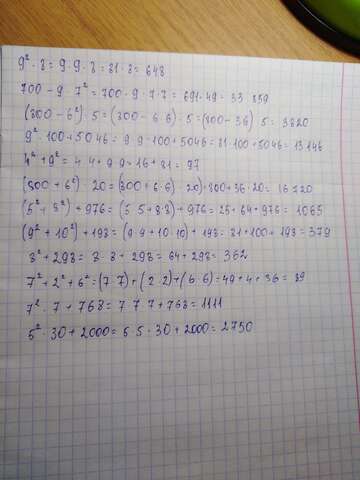 9² · 8 = 9 · 9 · 8 = 81 · 8 = 648
700 - 9 · 7² = 700 - 9 · 7 · 7 = 691 · 49 = 33 859
(800 - 6²) · 5 = (800 - 6 · 6) · 5 = (800 - 36) · 5 = 3820
9² · 100 + 5046 = 9 · 9 · 100 + 5046 = 81 · 100 + 5046 = 13 146
4² + 9² = 4 · 4 + 9 · 9 = 16 + 81 = 97
(800 + 6²) · 20 = (800 + 6 · 6) · 20) = 800 + 36 · 20 = 16 720
(5² + 8²) + 976 = (5 · 5 + 8 · 8) + 976 = 25 + 64 + 976 = 1065
(9² + 10²) + 198 = (9 · 9 + 10 · 10) + 198 = 81 + 100 + 198 = 379
8² + 298 = 8 · 8 + 298 = 64 + 298 = 362
7² + 2² + 6² = (7 · 7) + (2 · 2) + (6 · 6) = 49 + 4 + 36 = 89
7² · 7 + 768 = 7 · 7 · 7 + 768 = 1111
5² · 30 + 2000 = 5 · 5 · 30 + 2000 = 2750